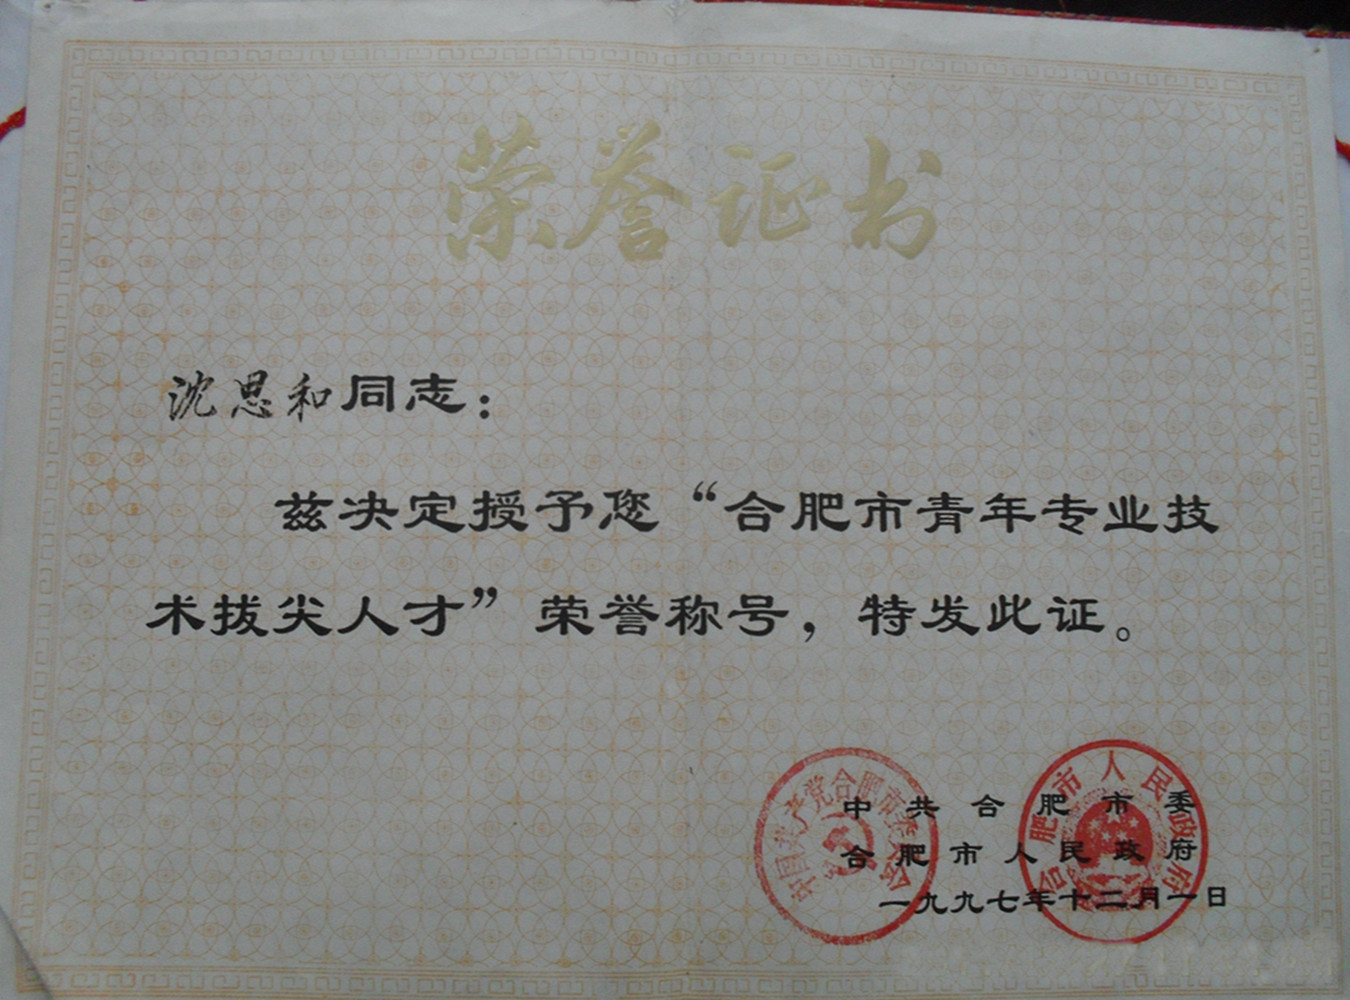 荣誉证书
沈思和同志：
兹决定授予您“合肥市青年专业技
术拔尖人才”荣誉称号，特发此证。
中国共产党合肥市委员会
合肥市人民政府
中共合肥市委
合肥市人民政府
一九九七年十二月一日